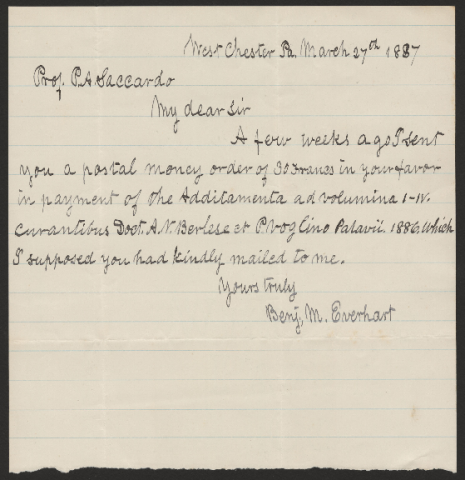 West Chester Pa. March 27th 1887
Prof. P. A Saccardo
My dear Sir
A few weeks ago I sent
you a postal money order of 30 Francs in your favor
in payment of the Additamenta ad volumina I-IV.
curantibus Doct. A. N. Berlese et P. Voglino Patavii. 1886, Which
I supposed you had kindly mailed to me.
Yours truly
Benj. M. Everhart